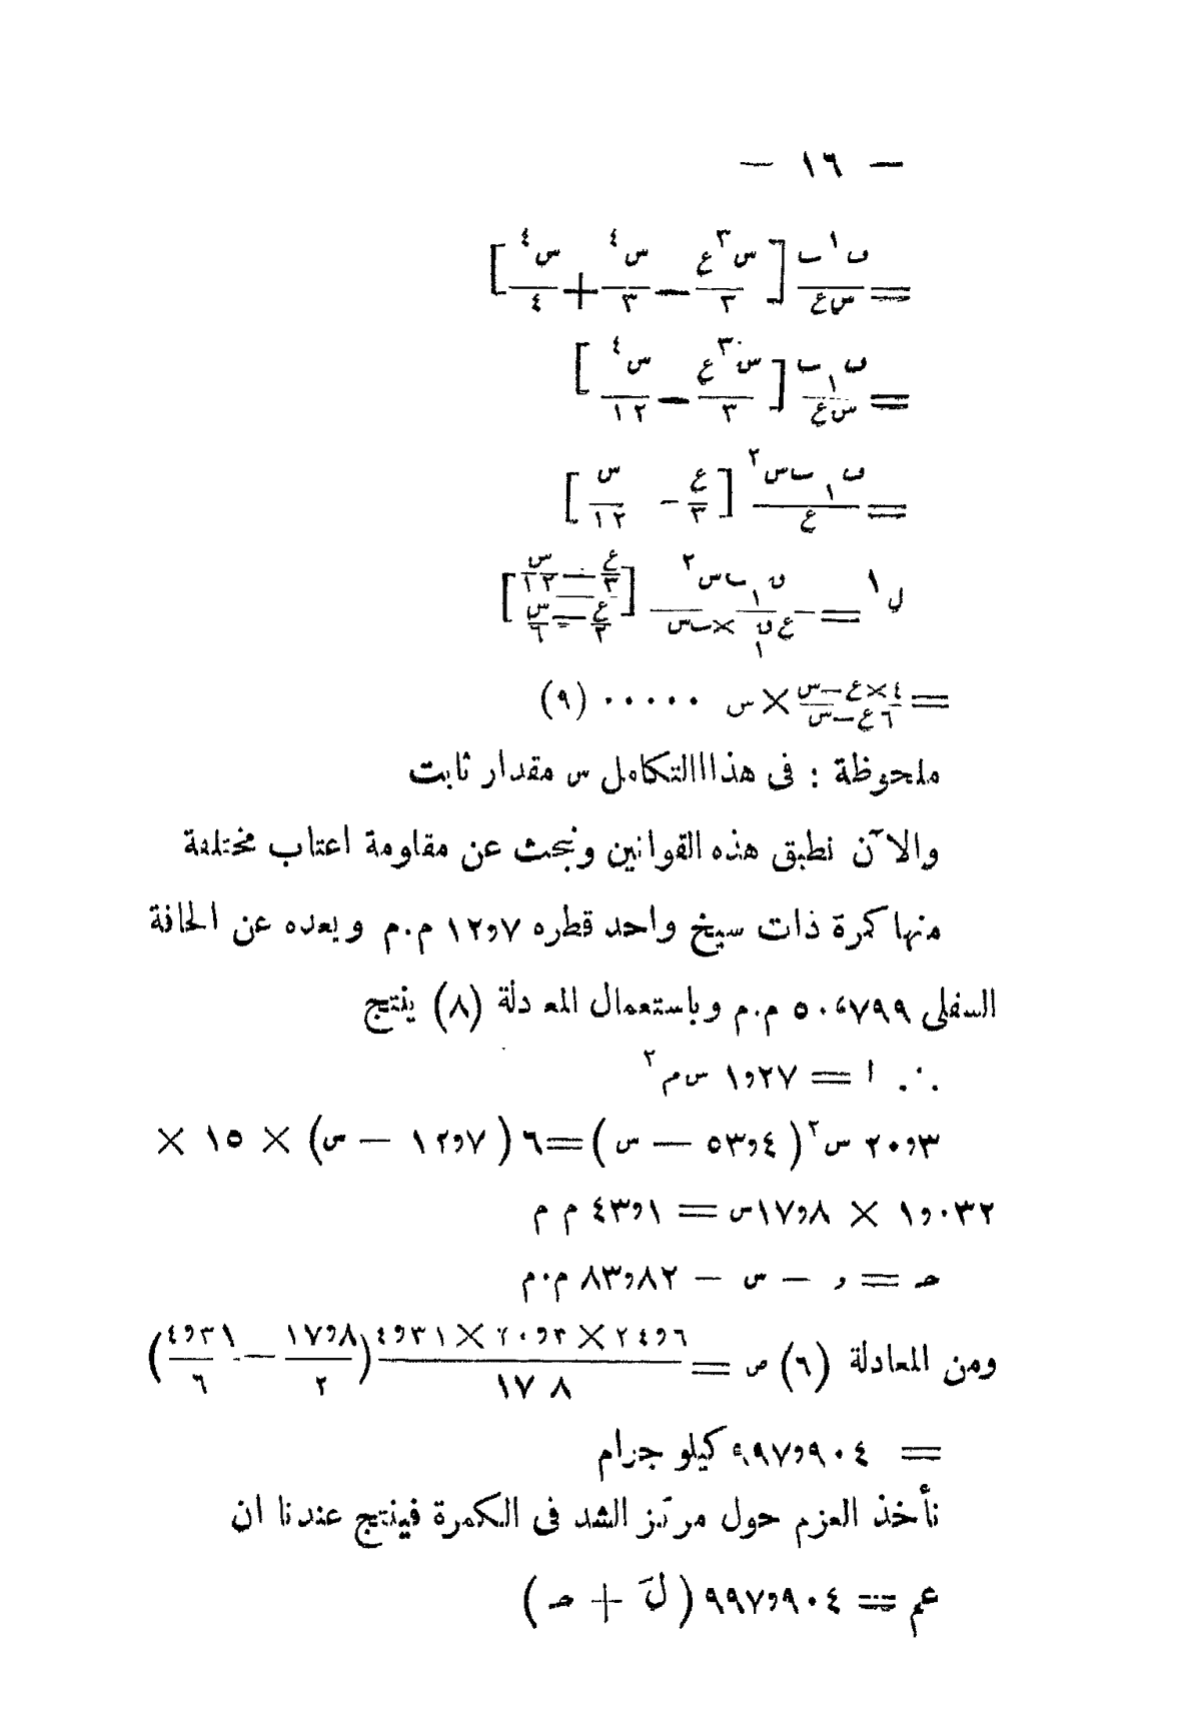 — ١٦ —
= ف١ ب / س ع [ س٣ ع / ٢ — س٤ / ٣ + س٤ / ٤ ]
= ف١ ب / س ع [ س٣ ع / ٣ — س٤ / ١٢ ]
= ف١ ب س٢ / ع [ ع / ٣ - س / ١٢ ]
ل١ = ف١ ب س٢ / ع ف١ × ب س [ ع/٣ — س/١٢ / ع/٢ — س/٦ ]
= ٤×ع—س / ٦ع—س × س ٠٠٠٠٠ (٩)
ملحوظة : فى هذا االتكامل س مقدار ثابت
والآن نطبق هذه القوانين ونبحث عن مقاومة اعتاب مختلفة
منها كمرة ذات سيخ واحد قطره ١٢و٧ م.م وبعده عن الحافة
السفلى ٥٠،٧٩٩ م.م وباستعمال المعادلة (٨) ينتج
∴ ا = ١و٢٧ س م٢
٢٠و٣ س٢ ( ٥٣و٤ — س ) = ٦ ( ١٢و٧ — س) × ١٥ ×
١و٠٣٢ × ١٧و٨س = ٤٣و١ م م
حـ = و — س — ٨٣و٨٢ م.م
ومن المعادلة (٦) ص = ٢٤و٦ × ٢٠و٣ × ٤و٣١ / ١٧ ٨ ( ١٧و٨ / ٢ — ٤و٣١ / ٦ )
= ٩٩٧و٩٠٤ كيلو جرام
نأخذ العزم حول مركز الشد فى الكمرة فينتج عندنا ان
عم = ٩٩٧و٩٠٤ ( لَ + حـ )